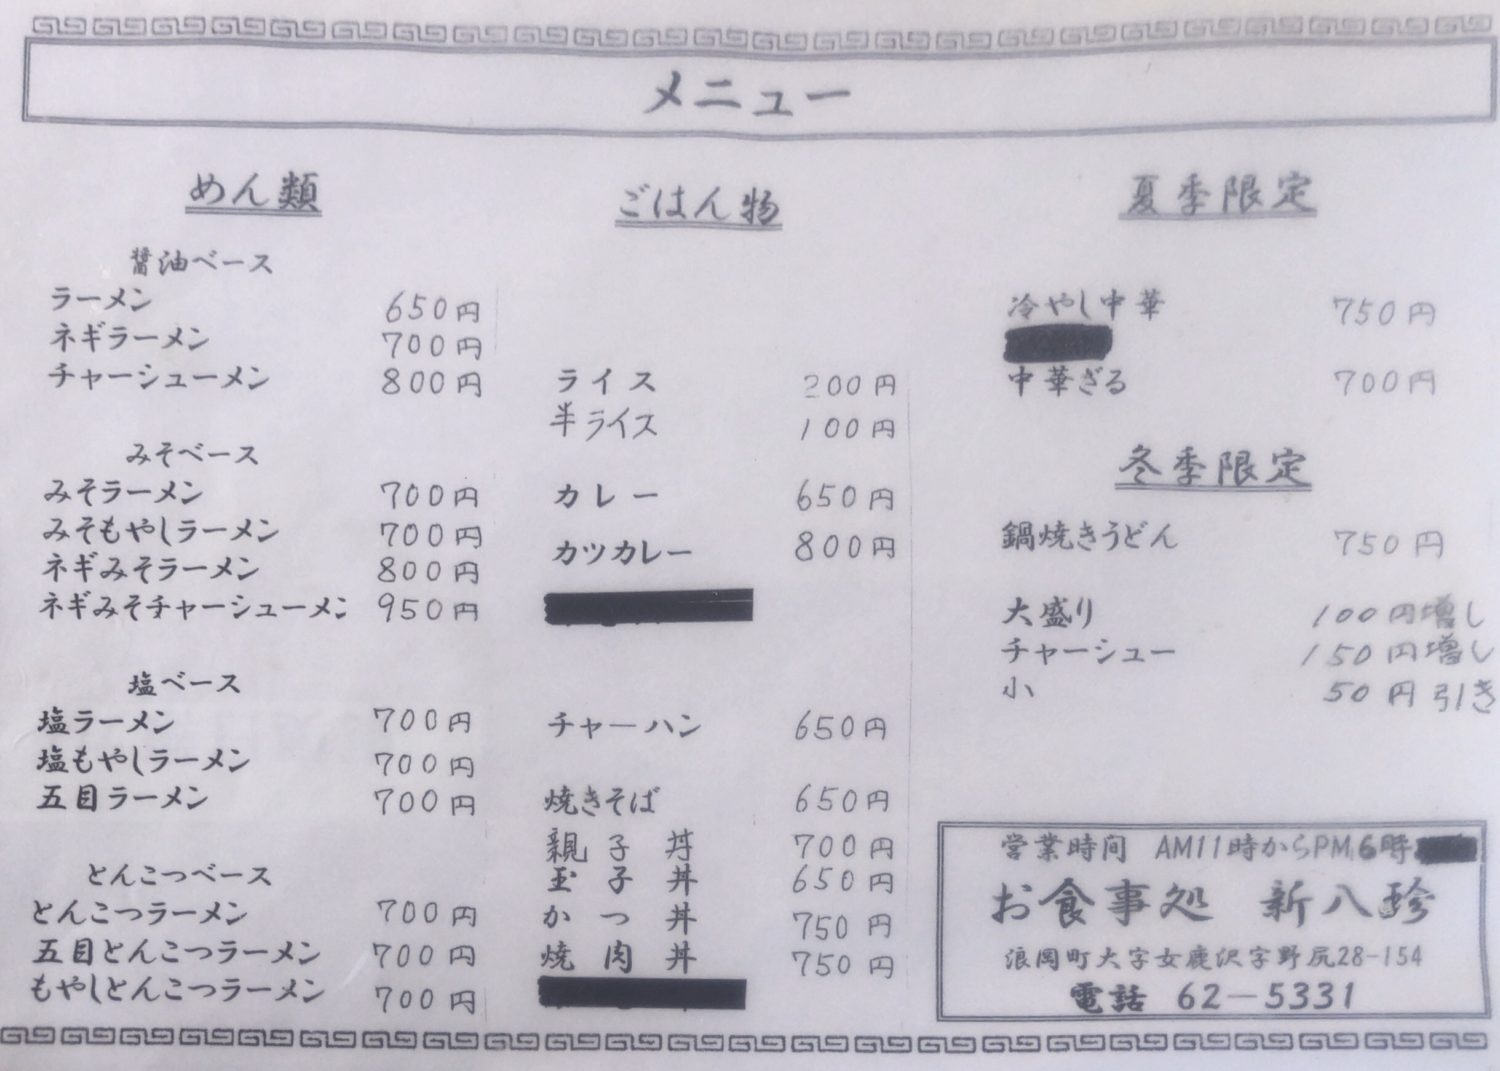 メニュー
めん類
醤油ベース
ラーメン 650円
ネギラーメン 700円
チャーシューメン 800円
みそベース
みそラーメン 700円
みそもやしラーメン 700円
ネギみそラーメン 800円
ネギみそチャーシューメン 950円
塩ベース
塩ラーメン 700円
塩もやしラーメン 700円
五目ラーメン 700円
とんこつベース
とんこつラーメン 700円
五目とんこつラーメン 700円
もやしとんこつラーメン 700円
ごはん物
ライス 200円
半ライス 100円
カレー 650円
カツカレー 800円
チャーハン 650円
焼きそば 650円
親子丼 700円
玉子丼 650円
かつ丼 750円
焼肉丼 750円
夏季限定
冷やし中華 750円
中華ざる 700円
冬季限定
鍋焼きうどん 750円
大盛り 100円増し
チャーシュー 150円増し
小 50円引き
営業時間 AM11時からPM6時
お食事処 新八珍
浪岡町大字女鹿沢字野尻28-154
電話 62-5331